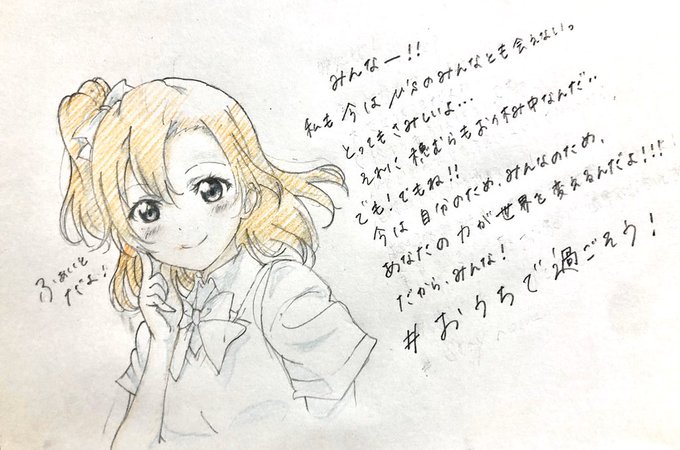 みんなー!!
私も今はμ'sのみんなとも会えないっ
とってもさみしいよ...
それに穂むらもお休み中なんだ..
でも!でもね!!
今は自分のため、みんなのため、
あなたの力が世界を変えるんだよ!!!
だから、みんな!
#おうちで過ごそう!
ふぁいと
だよ!